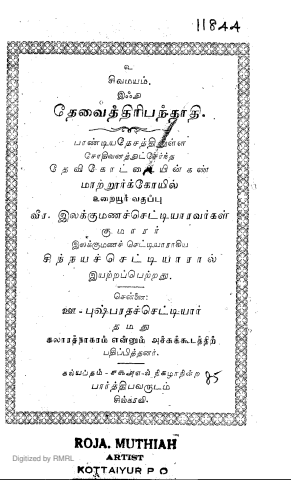 11844
உ
சிவமயம்.
இஃது
தேவைத்திரிபந்தாதி.
பாண்டியதேசத்திலுள்ள
சோதிவனத்தடசேர்ந்த
தேவிகோட்டையின்கண்
மாற்றூர்க்கோயில்
உறையூர் வகுப்பு
வீர. இலக்குமணச்செட்டியாரவர்கள்
குமாரர்
இலக்குமணச் செட்டியாராகிய
சின்நயச்செட்டியாரால்
இயற்றப்பெற்றது.
சென்னை:
ஊ-புஷ்பரதச்செட்டியார்
தமது
கலாரத்நாகரம் என்னும் அச்சுக்கூடத்திற்
பதிப்பித்தனர்.
கல்யப்தம் நிகழாநின்ற
பார்த்திபவருடம்
85
ROJA. MUTHIAH
ARTIST
KOTTAIYUR P O
Digitized by RMRL